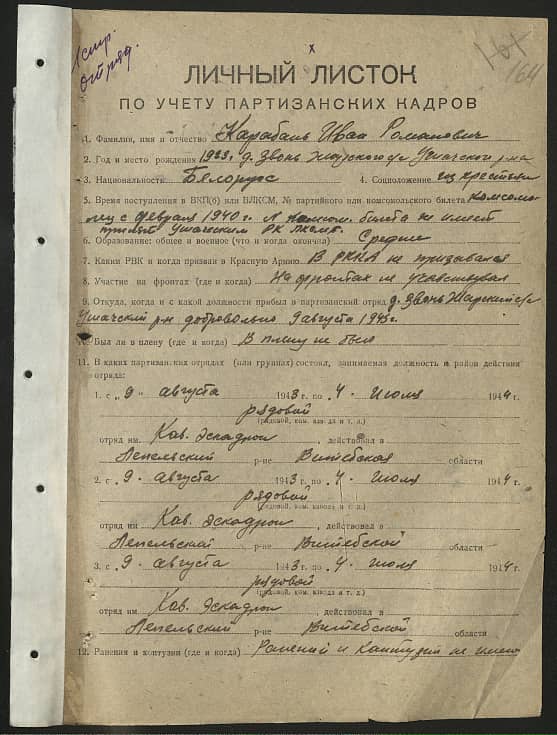 1 стр.
отряд.
х
164
ЛИЧНЫЙ ЛИСТОК
ПО УЧЕТУ ПАРТИЗАНСКИХ КАДРОВ
1. Фамилия, имя и отчество Карабань Иван Романович
2. Год и место рождения 1923г. д. Звонь Жарского с/с Ушачского р-на
3. Национальность Белорус 4. Соцположение из крестьян
5. Время поступления в ВКП(б) или ВЛКСМ, № партийного или комсомольского билета комсомо-
лец с февраля 1940г. № комсом. билета не имеет
принят Ушачским РК
6. Образование: общее и военное (что и когда окончил) Среднее
7. Каким РВК и когда призван в Красную Армию В РККА не призывался
8. Участие на фронтах (где и когда) На фронтах не участвовал
9. Откуда, когда и с какой должности прибыл в партизанский отряд д. Звонь Жарский с/с
Ушачский р-н добровольно 9 августа 1943г.
10. Был ли в плену (где и когда) В плену не был
11. В каких партизанских отрядах (или группах) состоял, занимаемая должность и район действия
отряда:
1. с „9" августа 1943 г. по „4" июля 1944 г.
рядовой
(рядовой, ком. взвода и т. д.)
отряд им. Кав. эскадрон, действовал в
Лепельский р-не Витебская области
2. с „9" августа 1943 г. по „4" июля 1944 г.
рядовой
(рядовой, ком. взвода и т. д.)
отряд им. Кав. эскадрон, действовал в
Лепельский р-не Витебской области
3. с „9" августа 1943 г. по „4" июля 1944 г.
рядовой
(рядовой, ком. взвода и т. д.)
отряд им. Кав. эскадрон, действовал в
Лепельский р-не Витебской области
12. Ранения и контузии (где и когда) Ранений и Контузий не имею